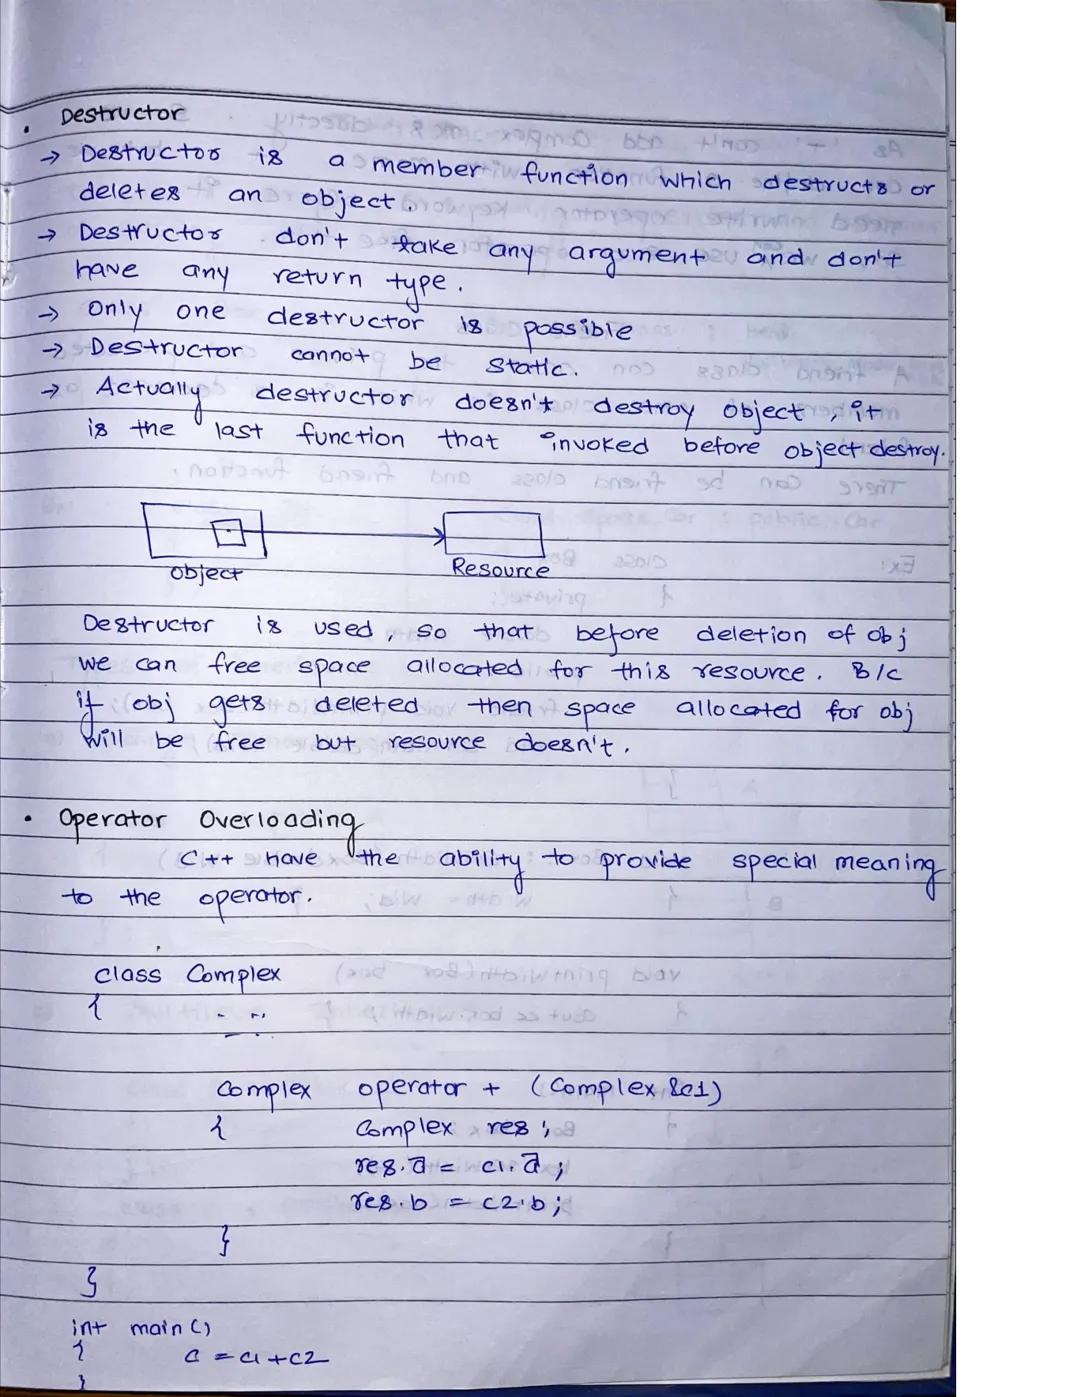 • Destructor
→ Destructor is a member function which destructs or
deletes an object.
→ Destructor don't take any argument and don't
have any return type.
→ Only one destructor is possible
→ Destructor cannot be static.
→ Actually destructor doesn't destroy object, it
is the last function that invoked before object destroy.
Object Resource
Destructor is used, so that before deletion of obj
we can free space allocated for this resource. B/c
if obj gets deleted then space allocated for obj
will be free but resource doesn't.
• Operator Overloading
C++ have the ability to provide special meaning
to the operator.
class Complex
{ - - ..
- - ..
Complex operator + (Complex &c1)
{ Complex res;
res.a = c1.a;
res.b = c2.b;
}
}
int main()
{ c = c1 + c2
}